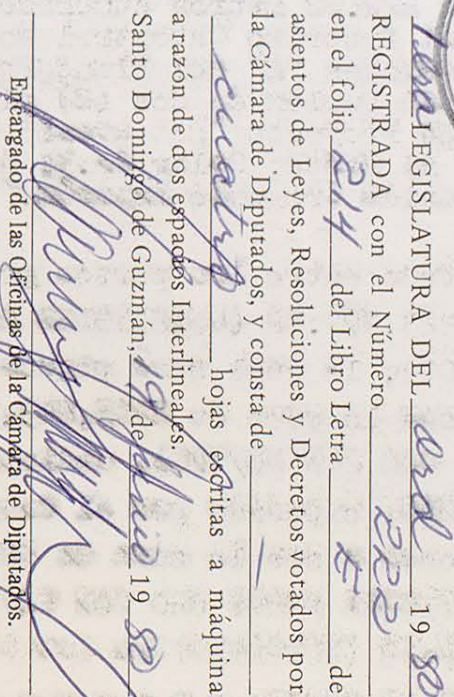 1era LEGISLATURA DEL 19 80
REGISTRADA con el Número 222
en el folio 214 del Libro Letra de
asientos de Leyes, Resoluciones y Decretos votados por
la Cámara de Diputados, y consta de —
cuatro hojas escritas a máquina
a razón de dos espacios Interlineales.
Santo Domingo de Guzmán, 19 de 19 80
Encargado de las Oficinas de la Cámara de Diputados.